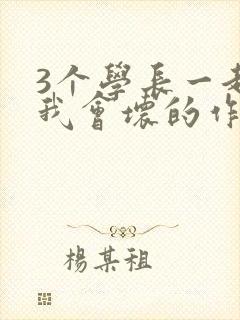 3个學長一
我會壞的作
楊某祖